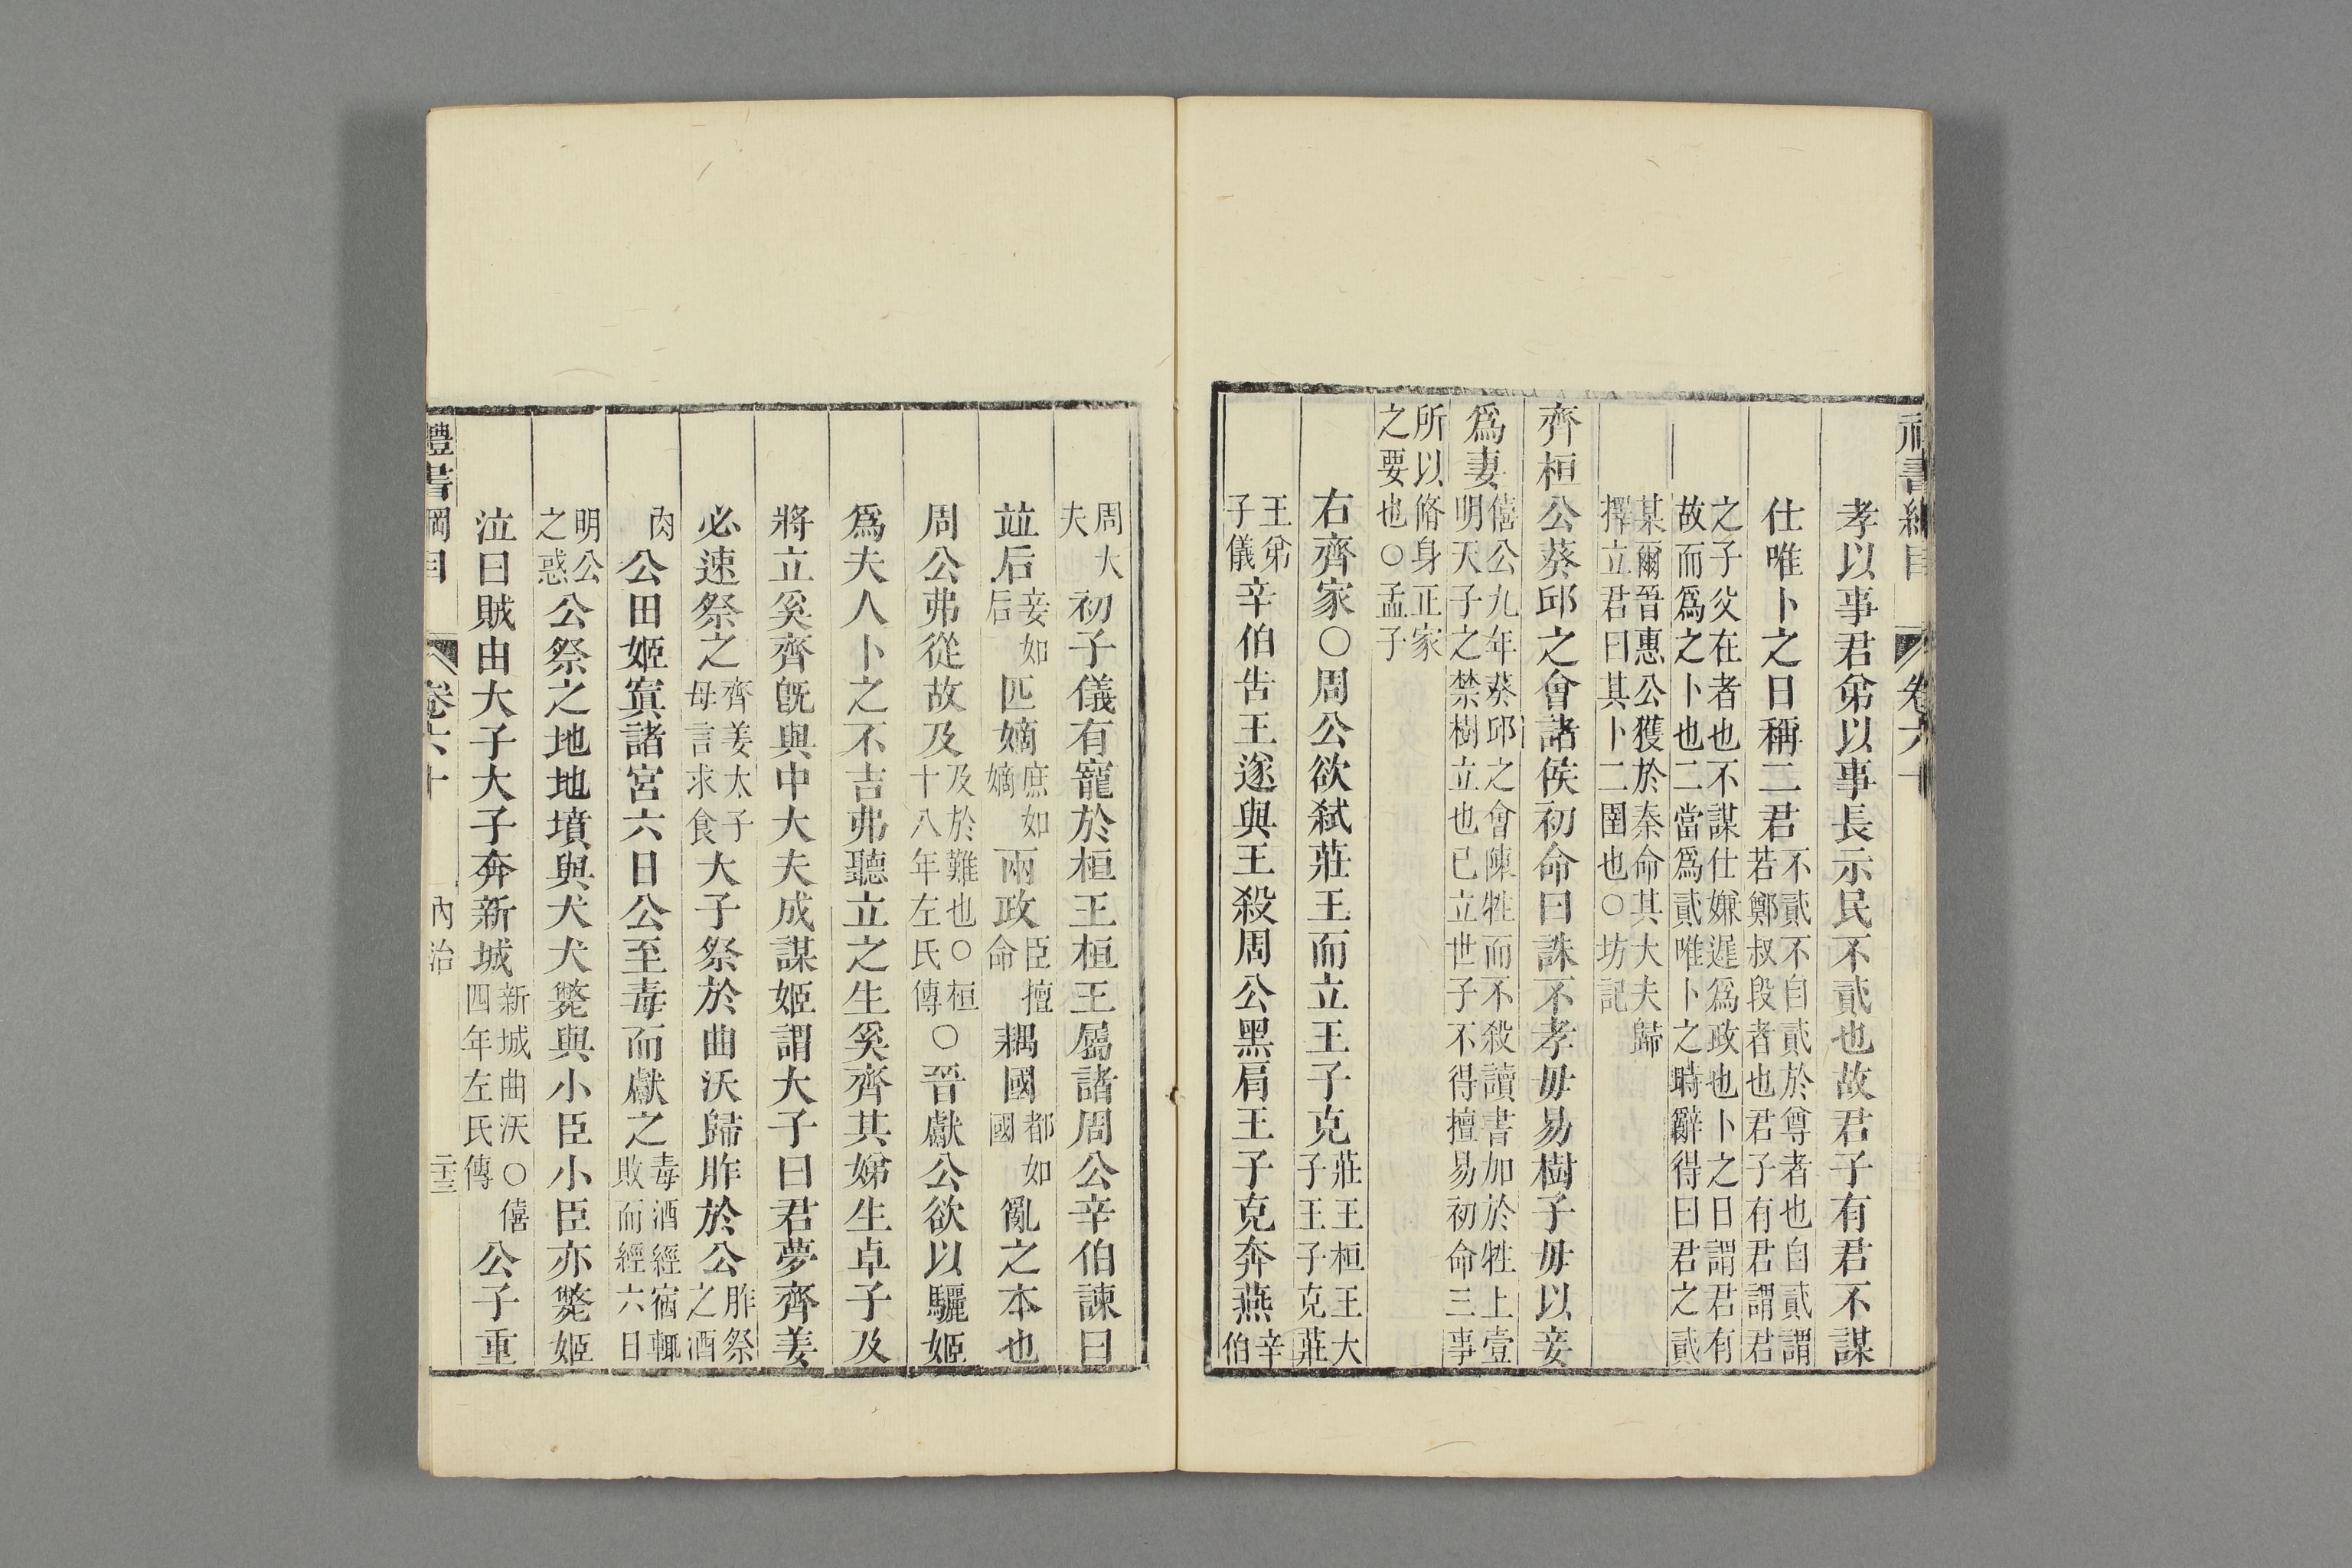 禮書綱目 卷六十
孝以事君弟以事長示民不貳也故君子有君不謀
仕唯卜之日稱二君不貳不自貳於尊者也自貳謂若鄭叔段者也君子有君謂君
之子父在者也不謀仕嫌遲爲政也卜之日謂君有故而爲之卜也二當爲貳唯卜之時辭得曰君之貳
某爾晉惠公獲於秦命其大夫歸擇立君曰其卜二圉也○坊記
齊桓公葵邱之會諸侯初命曰誅不孝毋易樹子毋以妾
爲妻僖公九年葵邱之會陳牲而不殺讀書加於牲上壹明天子之禁樹立也已立世子不得擅易初命三事
所以脩身正家之要也○孟子
右齊家○周公欲弒莊王而立王子克莊王桓王大子王子克莊
王弟子儀辛伯告王遂與王殺周公黑肩王子克奔燕辛伯
周大夫初子儀有寵於桓王桓王屬諸周公辛伯諫曰
竝后妾如后匹嫡庶如嫡兩政臣擅命耦國都如國亂之本也
周公弗從故及及於難也○桓十八年左氏傳○晉獻公欲以驪姬
爲夫人卜之不吉弗聽立之生奚齊其娣生卓子及
將立奚齊旣與中大夫成謀姬謂大子曰君夢齊姜
必速祭之齊姜太子母言求食大子祭於曲沃歸胙於公胙祭之酒
肉公田姬寘諸宮六日公至毒而獻之毒酒經宿輒敗而經六日
明公之惑公祭之地地墳與犬犬斃與小臣小臣亦斃姬
泣曰賊由大子大子奔新城新城曲沃○僖四年左氏傳公子重
禮書綱目 卷六十 內治 二十三